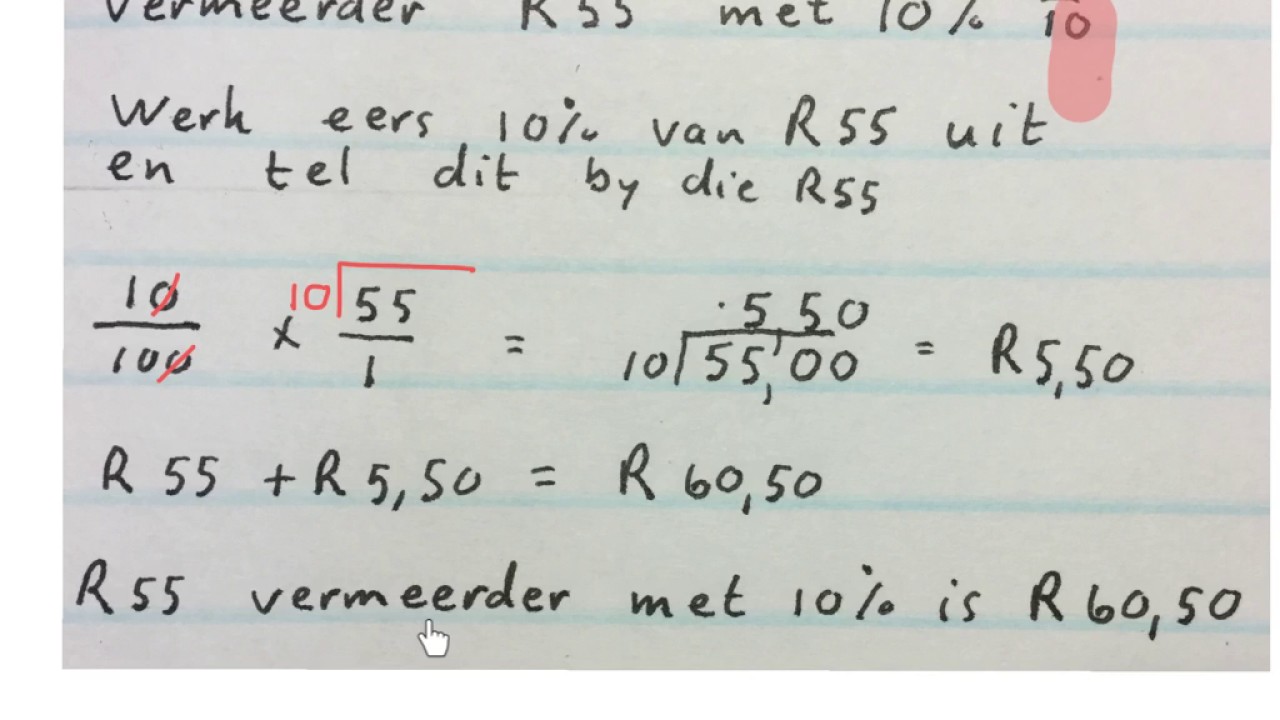 vermeerder R55 met 10% 10
Werk eers 10% van R55 uit
en tel dit by die R55
10/100 × 10√55/1 = 10√55,00 5,50 = R5,50
R 55 + R 5,50 = R 60,50
R55 vermeerder met 10% is R60,50